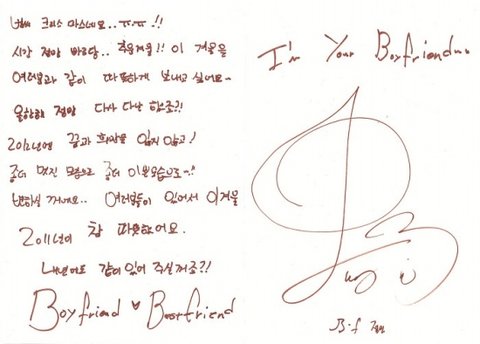 벌써 크리스마스네요..ㅠㅠ.!!
시간 정말 빠르당.. 추운겨울!! 이 겨울을
여러분과 같이 따뜻하게 보내고 싶어요~
올한해 정말 다사다난 했죠?!
2012년에 꿈과 희망을 잊지 않고!
좀더 멋진 모습으로 좀더 이쁜모습으로~!!
변하실 꺼예요.. 여러분들이 있어서 이겨울
2011년이 참 따뜻했어요.
내년에도 같이있어 주실꺼죠?!
Boyfriend ♥ Bestfriend
I'm Your Boyfriend..
B.f